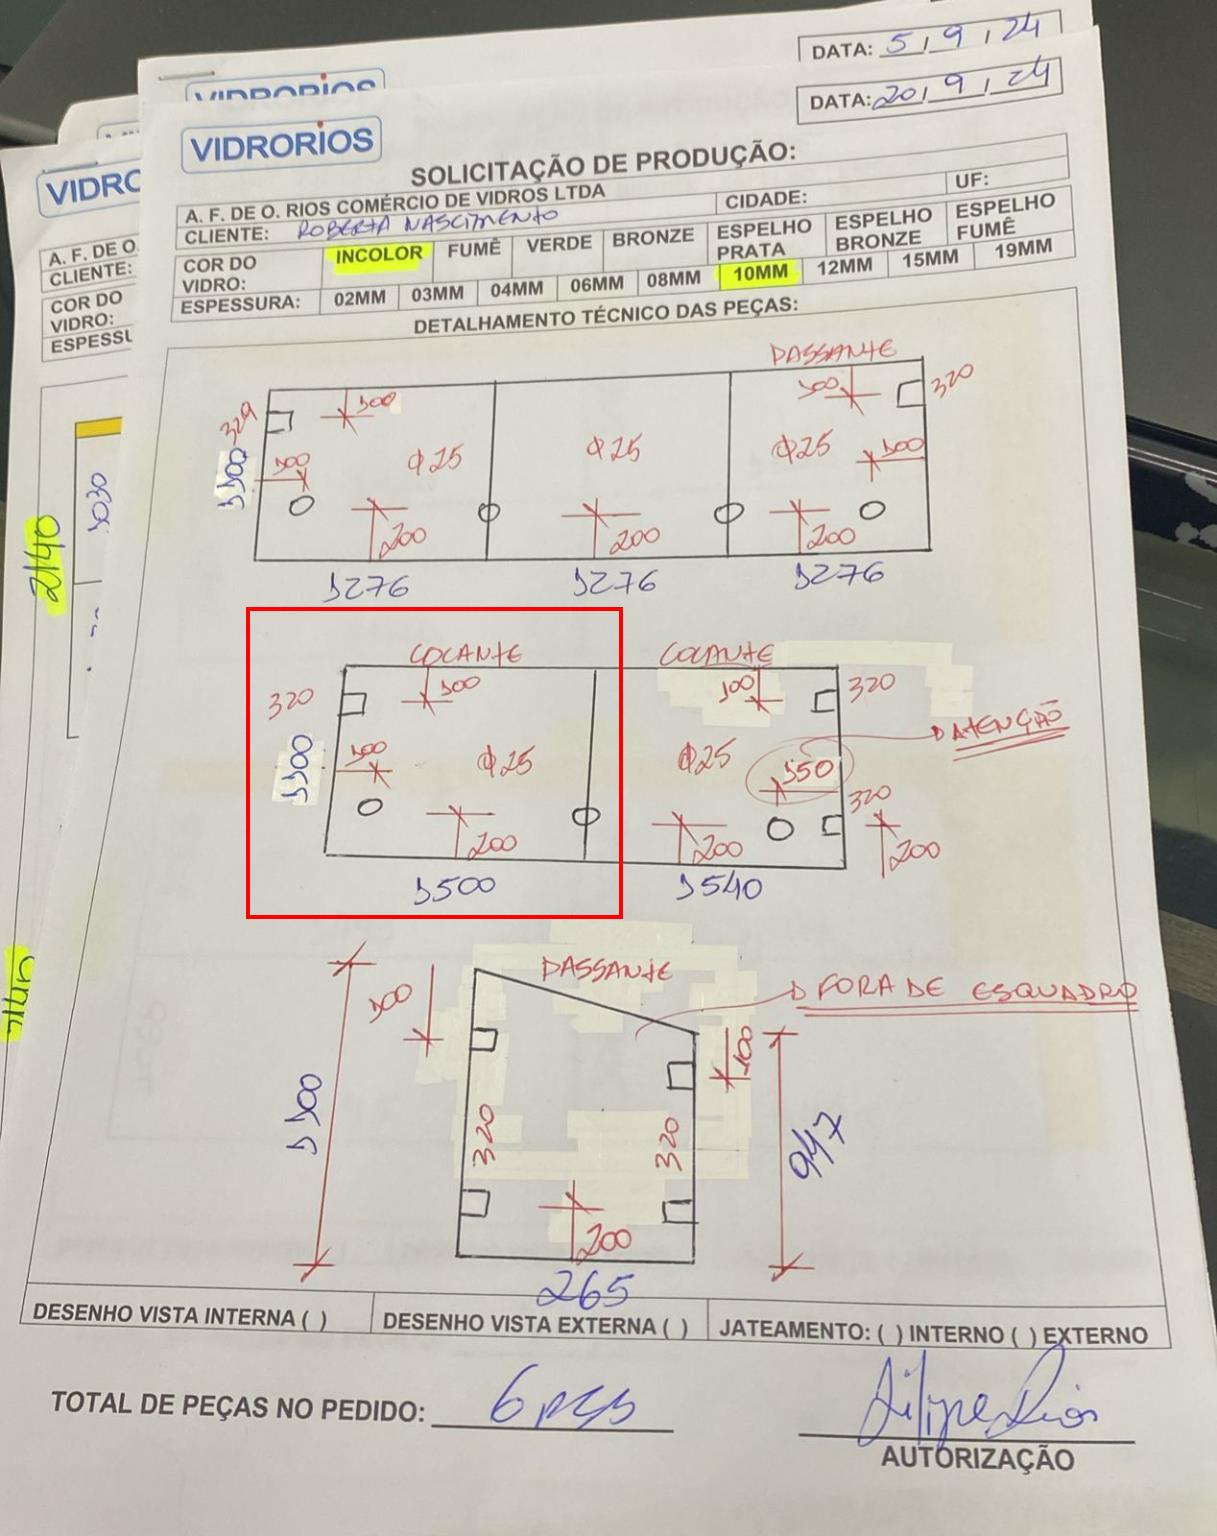 VIDRORIOS
DATA: 5 / 9 / 24
DATA: 20 / 9 / 24
VIDRORIOS
SOLICITAÇÃO DE PRODUÇÃO:
A. F. DE O. RIOS COMÉRCIO DE VIDROS LTDA
CIDADE:
UF:
CLIENTE: ROBERTA NASCIMENTO
COR DO VIDRO:
INCOLOR
FUMÊ
VERDE
BRONZE
ESPELHO PRATA
ESPELHO BRONZE
ESPELHO FUMÊ
ESPESSURA:
02MM
03MM
04MM
06MM
08MM
10MM
12MM
15MM
19MM
DETALHAMENTO TÉCNICO DAS PEÇAS:
PASSANTE
329
100
100
320
1100
100
Φ25
Φ25
Φ25
100
200
200
200
1276
1276
1276
COLANTE
COLANTE
320
100
100
320
ATENÇÃO
1100
100
Φ25
Φ25
150
320
200
200
200
1500
1540
PASSANTE
FORA DE ESQUADRO
100
100
1100
320
320
947
200
265
DESENHO VISTA INTERNA ( )
DESENHO VISTA EXTERNA ( )
JATEAMENTO: ( ) INTERNO ( ) EXTERNO
TOTAL DE PEÇAS NO PEDIDO: 6 pçs
Filipe Rios
AUTORIZAÇÃO
VIDRO
A. F. DE O.
CLIENTE:
COR DO
VIDRO:
ESPESSU
1030
2140